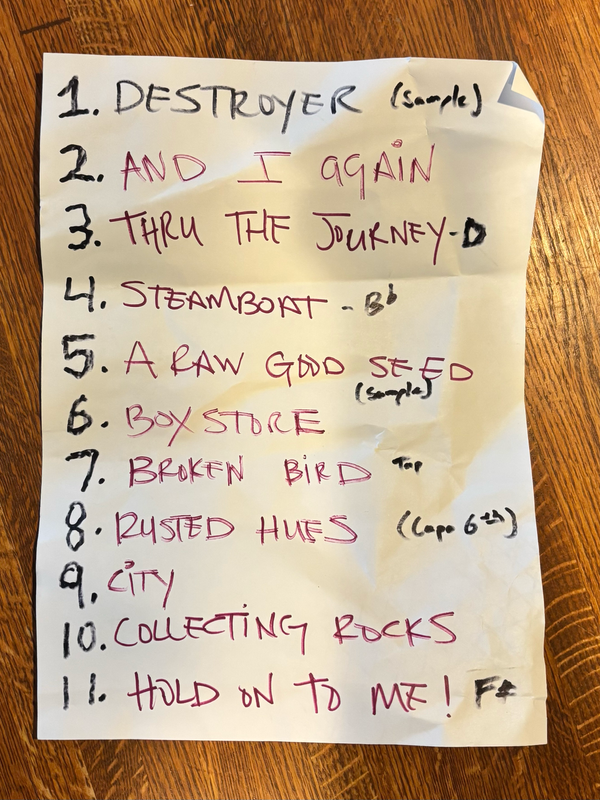 1. DESTROYER (Sample)
2. AND I AGAIN
3. THRU THE JOURNEY - D
4. STEAMBOAT - Bb
5. A RAW GOOD SEED
(Sample)
6. BOX STORE
7. BROKEN BIRD Top
8. RUSTED HUES (Capo 6th)
9. CITY
10. COLLECTING ROCKS
11. HOLD ON TO ME! F#